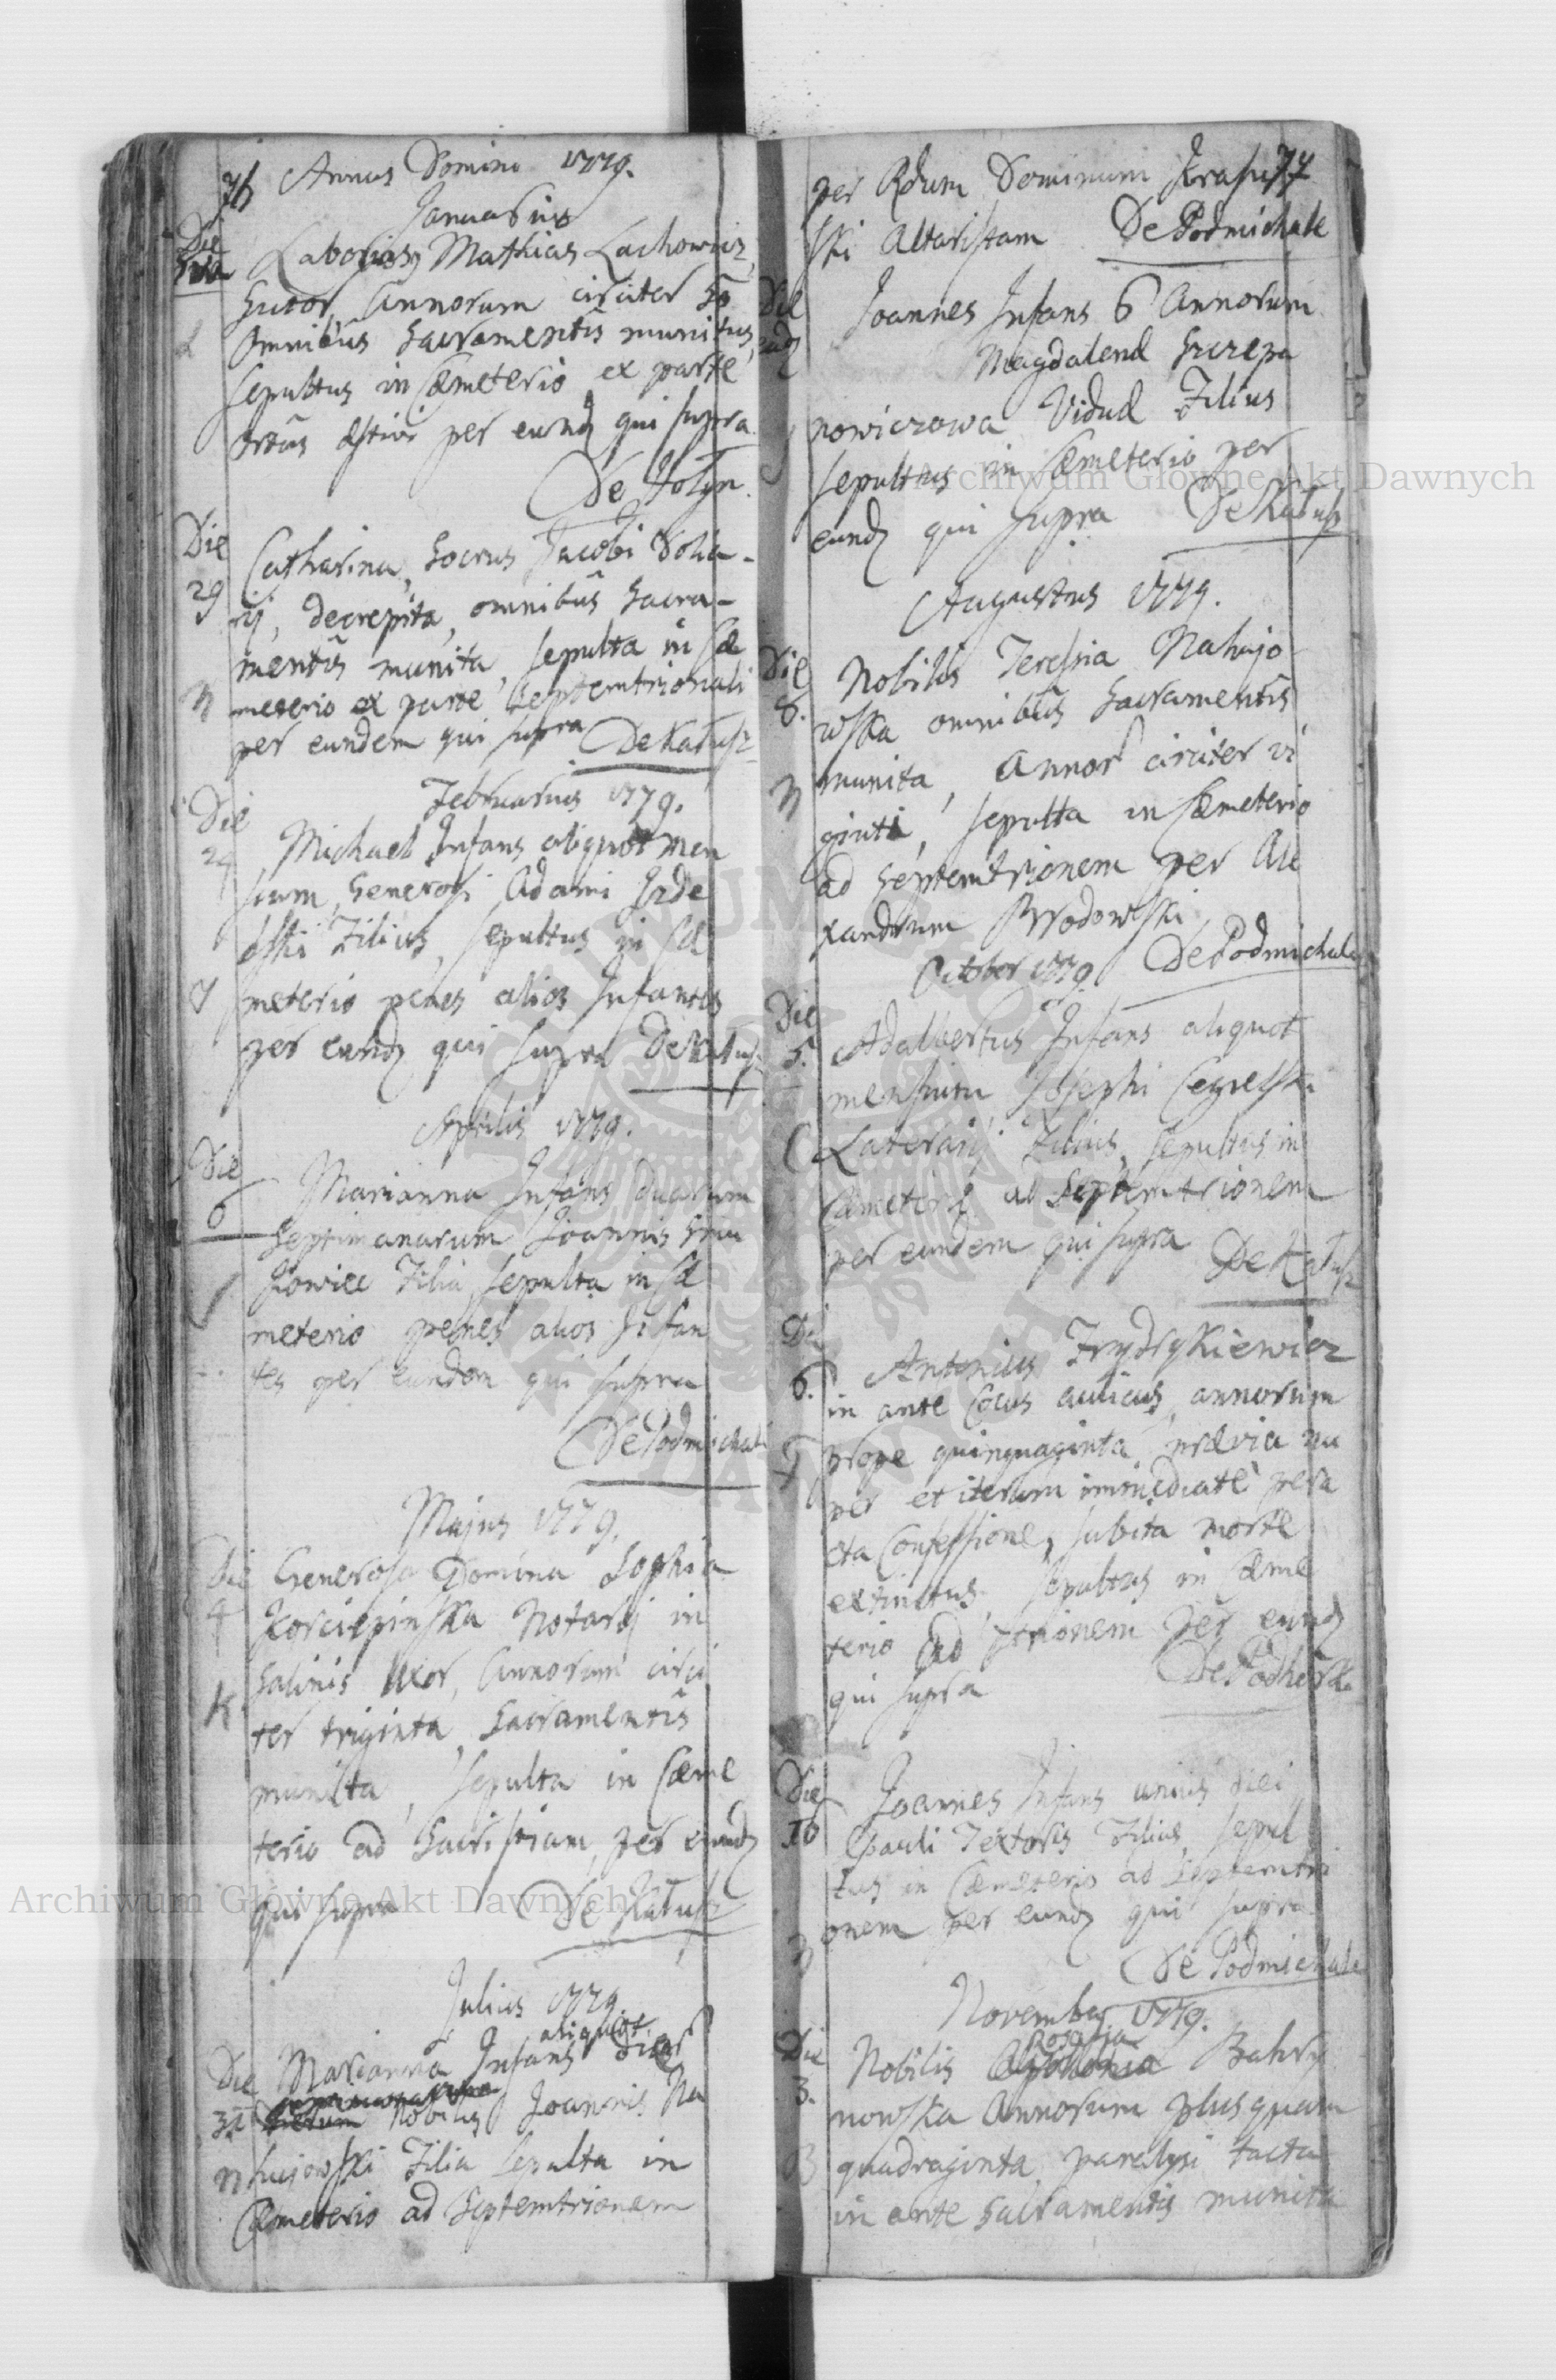 76 Annus Domini 1779.
Januarius
Die
Laboriosus Mathias Lachowicz,
Sutor, Annorum circiter 50
omnibus Sacramentis munitus,
sepultus in Cæmeterio ex parte
ortus æstivi per eundq qui supra.
De Hołyn.
Die 29
Catharina, Socrus Jacobi Dolia-
rij, decrepita, omnibus Sacra-
mentis munita, sepulta in Cæ
meterio ex parte Septemtrionali
per eundem qui supra De Kałusz
Februarius 1779.
Die 24
Michael Infans aliquot men
sium, Generosi Adami
Filius, sepultus in Cæ
meterio penes alios Infantes
per eundq qui supra De Kałusz
Aprilis 1779.
Die 6
Marianna Infans duarum
Septimanarum Joannis
Filia, sepulta in Cæ
meterio penes alios Infan
tes per eundem qui supra
De Podmichale
Majus 1779.
Die 4
Generosa Domina Sophia
Korciepinska Notarij in
Salinis Uxor, Annorum circi
ter triginta, Sacramentis
K
munita, sepulta in Cæme
terio ad Sacristiam, per eundq
qui supra De Kałusz
Julius 1779.
aliquot
Die Marianna Infans dier
31 Nobilis Joannis Na
N hujowski Filia sepulta in
Cæmeterio ad Septemtrionem
77
per Rdum Dominum Krasu
ski Altaristam De Podmichale
Die eadq
Joannes Infans 6 Annorum
Magdalenæ Szczepa
nowiczowa Viduæ Filius
sepultus in Cæmeterio per
eundq qui supra De Kałusz
Augustus 1779.
Die 8.
Nobilis Teressia Nahujo
wska omnibus Sacramentis
N munita, Annor circiter vi
ginti, sepulta in Cæmeterio
ad Septemtrionem per Ale
xandrum Brodowski
October 1779. De Podmichale
Die 5.
Adalbertus Infans aliquot
mensium Josephi Cegielski
C Laterarij Filius, sepultus in
Cæmeterio ad Septemtrionem
per eundem qui supra De Kałusz
Die 6.
Antonius Frydrykiewicz
in ante Cocus aulicus, annorum
prope quinquaginta prævia nu
per et iterum immediate pera
cta Confessione, subita morte
extinctus sepultus in Cæme
terio ad ptrionem per eundq
qui supra De Podhorki
Die 10
Joannes Infans unius diei
Pauli Textoris Filius, sepul
tus in Cæmeterio ad Septemtri
onem per eundq qui supra
De Podmichale
November 1779.
Rosalia
Die 3.
Nobilis Apollonia Bahry
nowska Annorum plusquam
B quadraginta, paralysi tacta
in ante Sacramentis munita
Archiwum Główne Akt Dawnych
Archiwum Główne Akt Dawnych